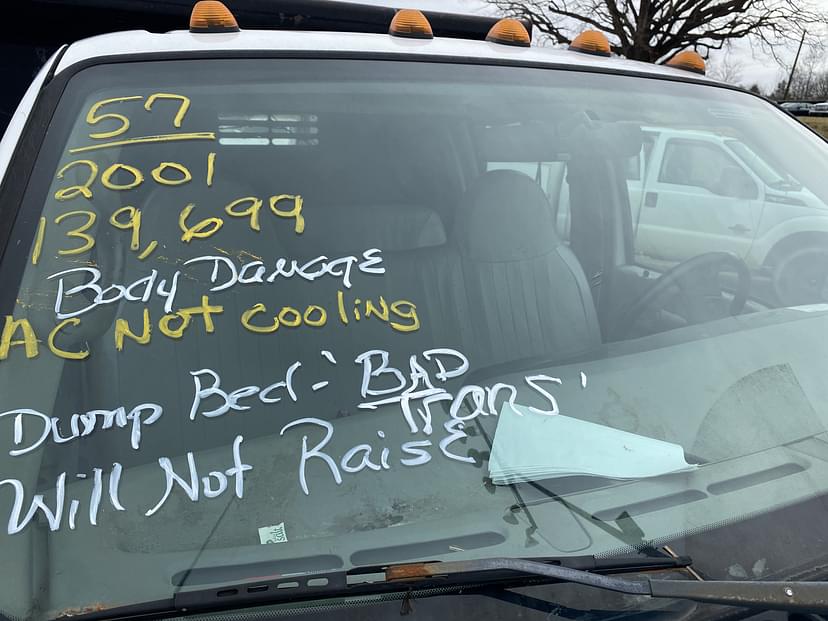 57
2001
139,699
Body Damage
AC Not Cooling
Dump Bed - BAD Trans
Will Not Raise